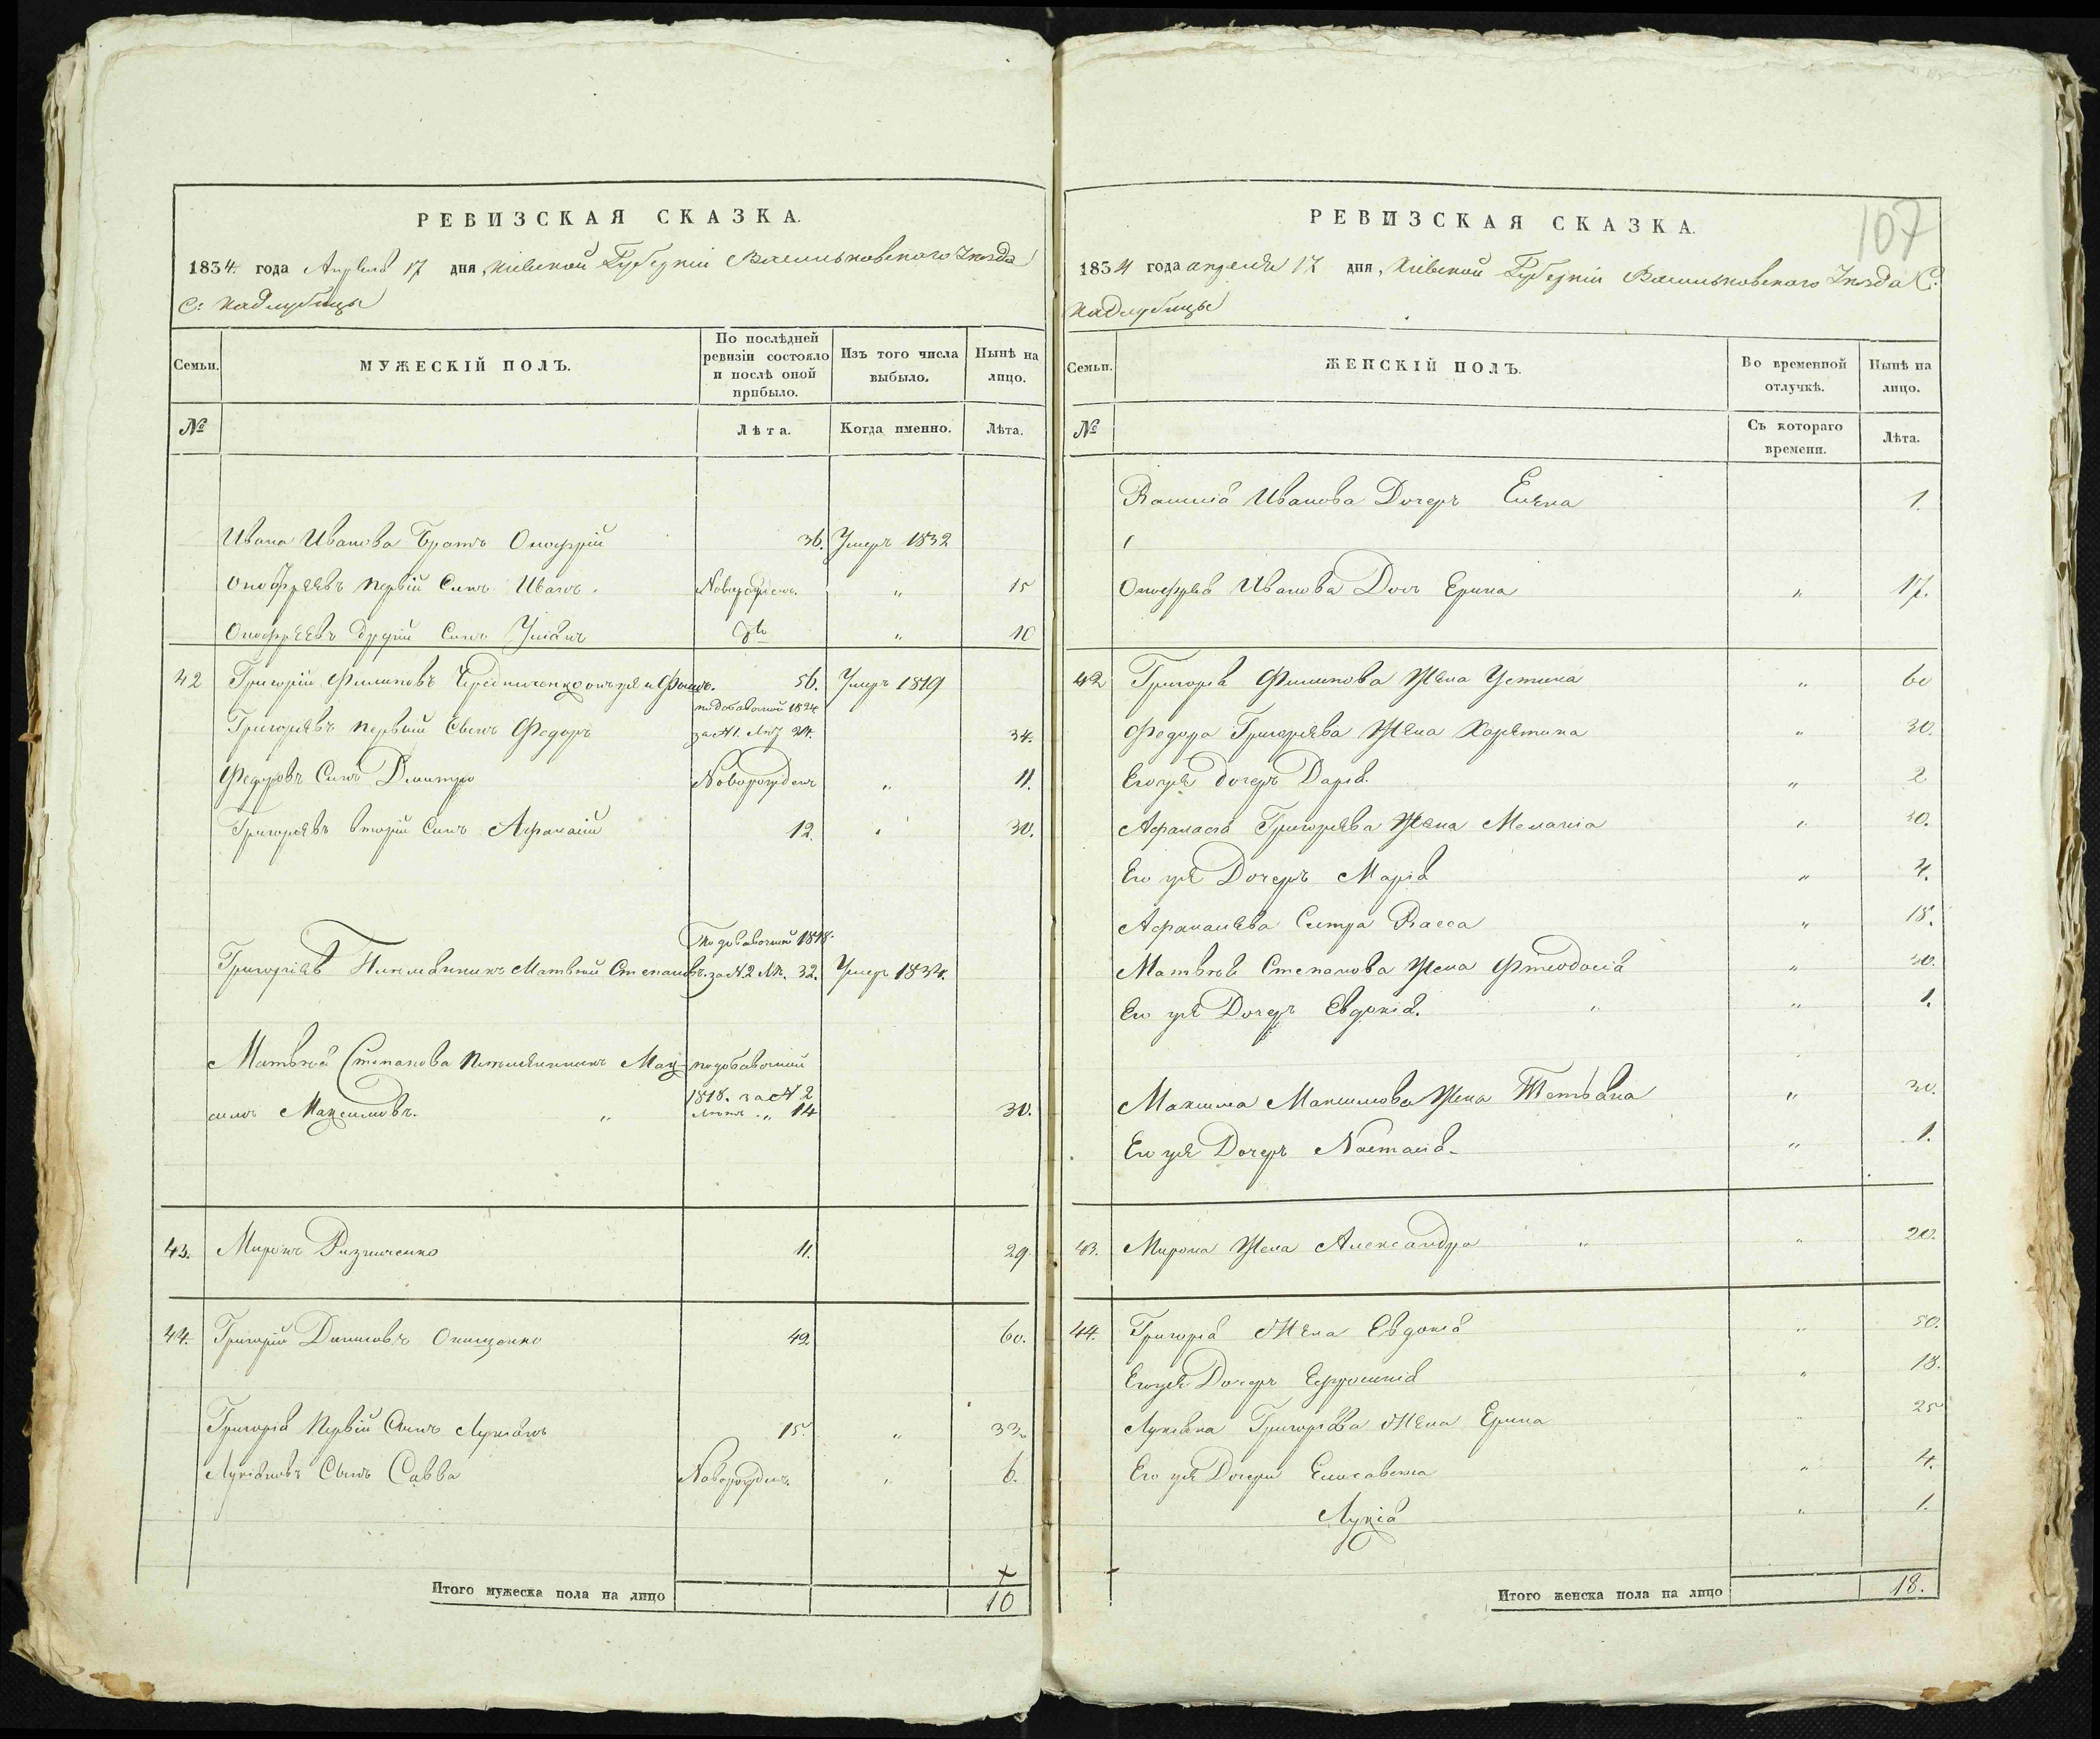 РЕВИЗСКАЯ СКАЗКА.
1834. года Апреля 17 дня Кіевской Губерніи Васильковского Уезда
С: Кадлубицы
Семьи.
МУЖЕСКІЙ ПОЛЪ.
По послѣдней ревизіи состояло и послѣ оной прибыло.
Изъ того числа выбыло.
Нынѣ на лицо.
№
Лѣта.
Когда именно.
Лѣта.
Ивана Иванова Братъ Онофрій 36. Умеръ 1832
Онофреевъ первій Синъ Иванъ. Новорожден. „ 15
Онофреевъ другій Синъ Уліанъ „ 10
42 Григорій Филиповъ 56. Умеръ 1819
Григорьевъ первый Сынъ Федоръ подобавочной 1824 за №1. 34.
Федоровъ Синъ Дмитро Новорожденъ „ 11.
Григорьевъ вторій Синъ Афанасій 12. „ 30.
Григоріявъ Племянникъ Матвѣй Степановъ. подобавочной 1818. за №2 32. Умеръ 1834.
Матвѣя Степанова Племянникъ Мак- подобавочной
симъ Максимовъ. „ 1818. за №2 Лѣтъ „ 14 30.
43. Миронъ Ризниченко 11. 29
44. Григорій Даниловъ Онищенко 42 60.
Григорія первій Синъ Лукіанъ 15. „ 33.
Лукіяновъ Сынъ Савва Новорожден. „ 6.
Итого мужеска пола на лицо 10
107
РЕВИЗСКАЯ СКАЗКА.
1834 года апреля 17 дня, Кіевской Губерніи Васильковского Уезда С:
Кадлубицы
Семьи.
ЖЕНСКІЙ ПОЛЪ.
Во временной отлучкѣ.
Нынѣ на лицо.
№
Съ котораго времени.
Лѣта.
Василія Иванова Дочеръ Елена 1.
Онофрея Иванова Доч Ерина „ 17.
42 Григорея Филипова Жена Устина „ 60
Федора Григорева Жена Харитина „ 30.
Егоже дочеръ Дарія. „ 2
Афанасія Григорева Жена Меланія „ 30.
Его же Дочеръ Марія „ 4.
Афанасіева Систра Васса „ 15.
Матвѣя Степанова Жена Фтеодосія „ 30.
Его же Дочеръ Евдокія. „ „ 1.
Максима Максимова Жена Татьяна „ 30.
Его же Дочеръ Настасія. „ 1.
43. Мирона Жена Александра „ „ 20.
44. Григорія Жена Евдокія „ 50.
Егоже Дочеръ Ефросинія „ 18.
Лукіана Григорієва Жена Ерина „ 25
Его же Дочери Елисавета „ 4.
Лукія „ 1.
Итого женска пола на лицо 18.